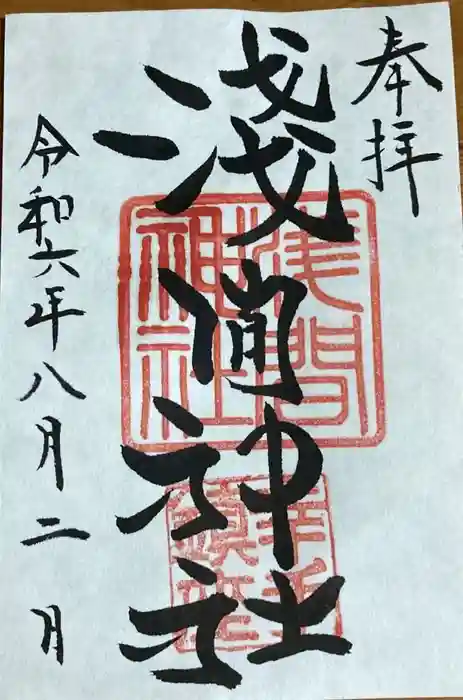 奉拝
淺間神社
令和六年八月二日
淺間
神社